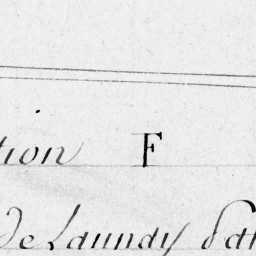 tion F
De Launay